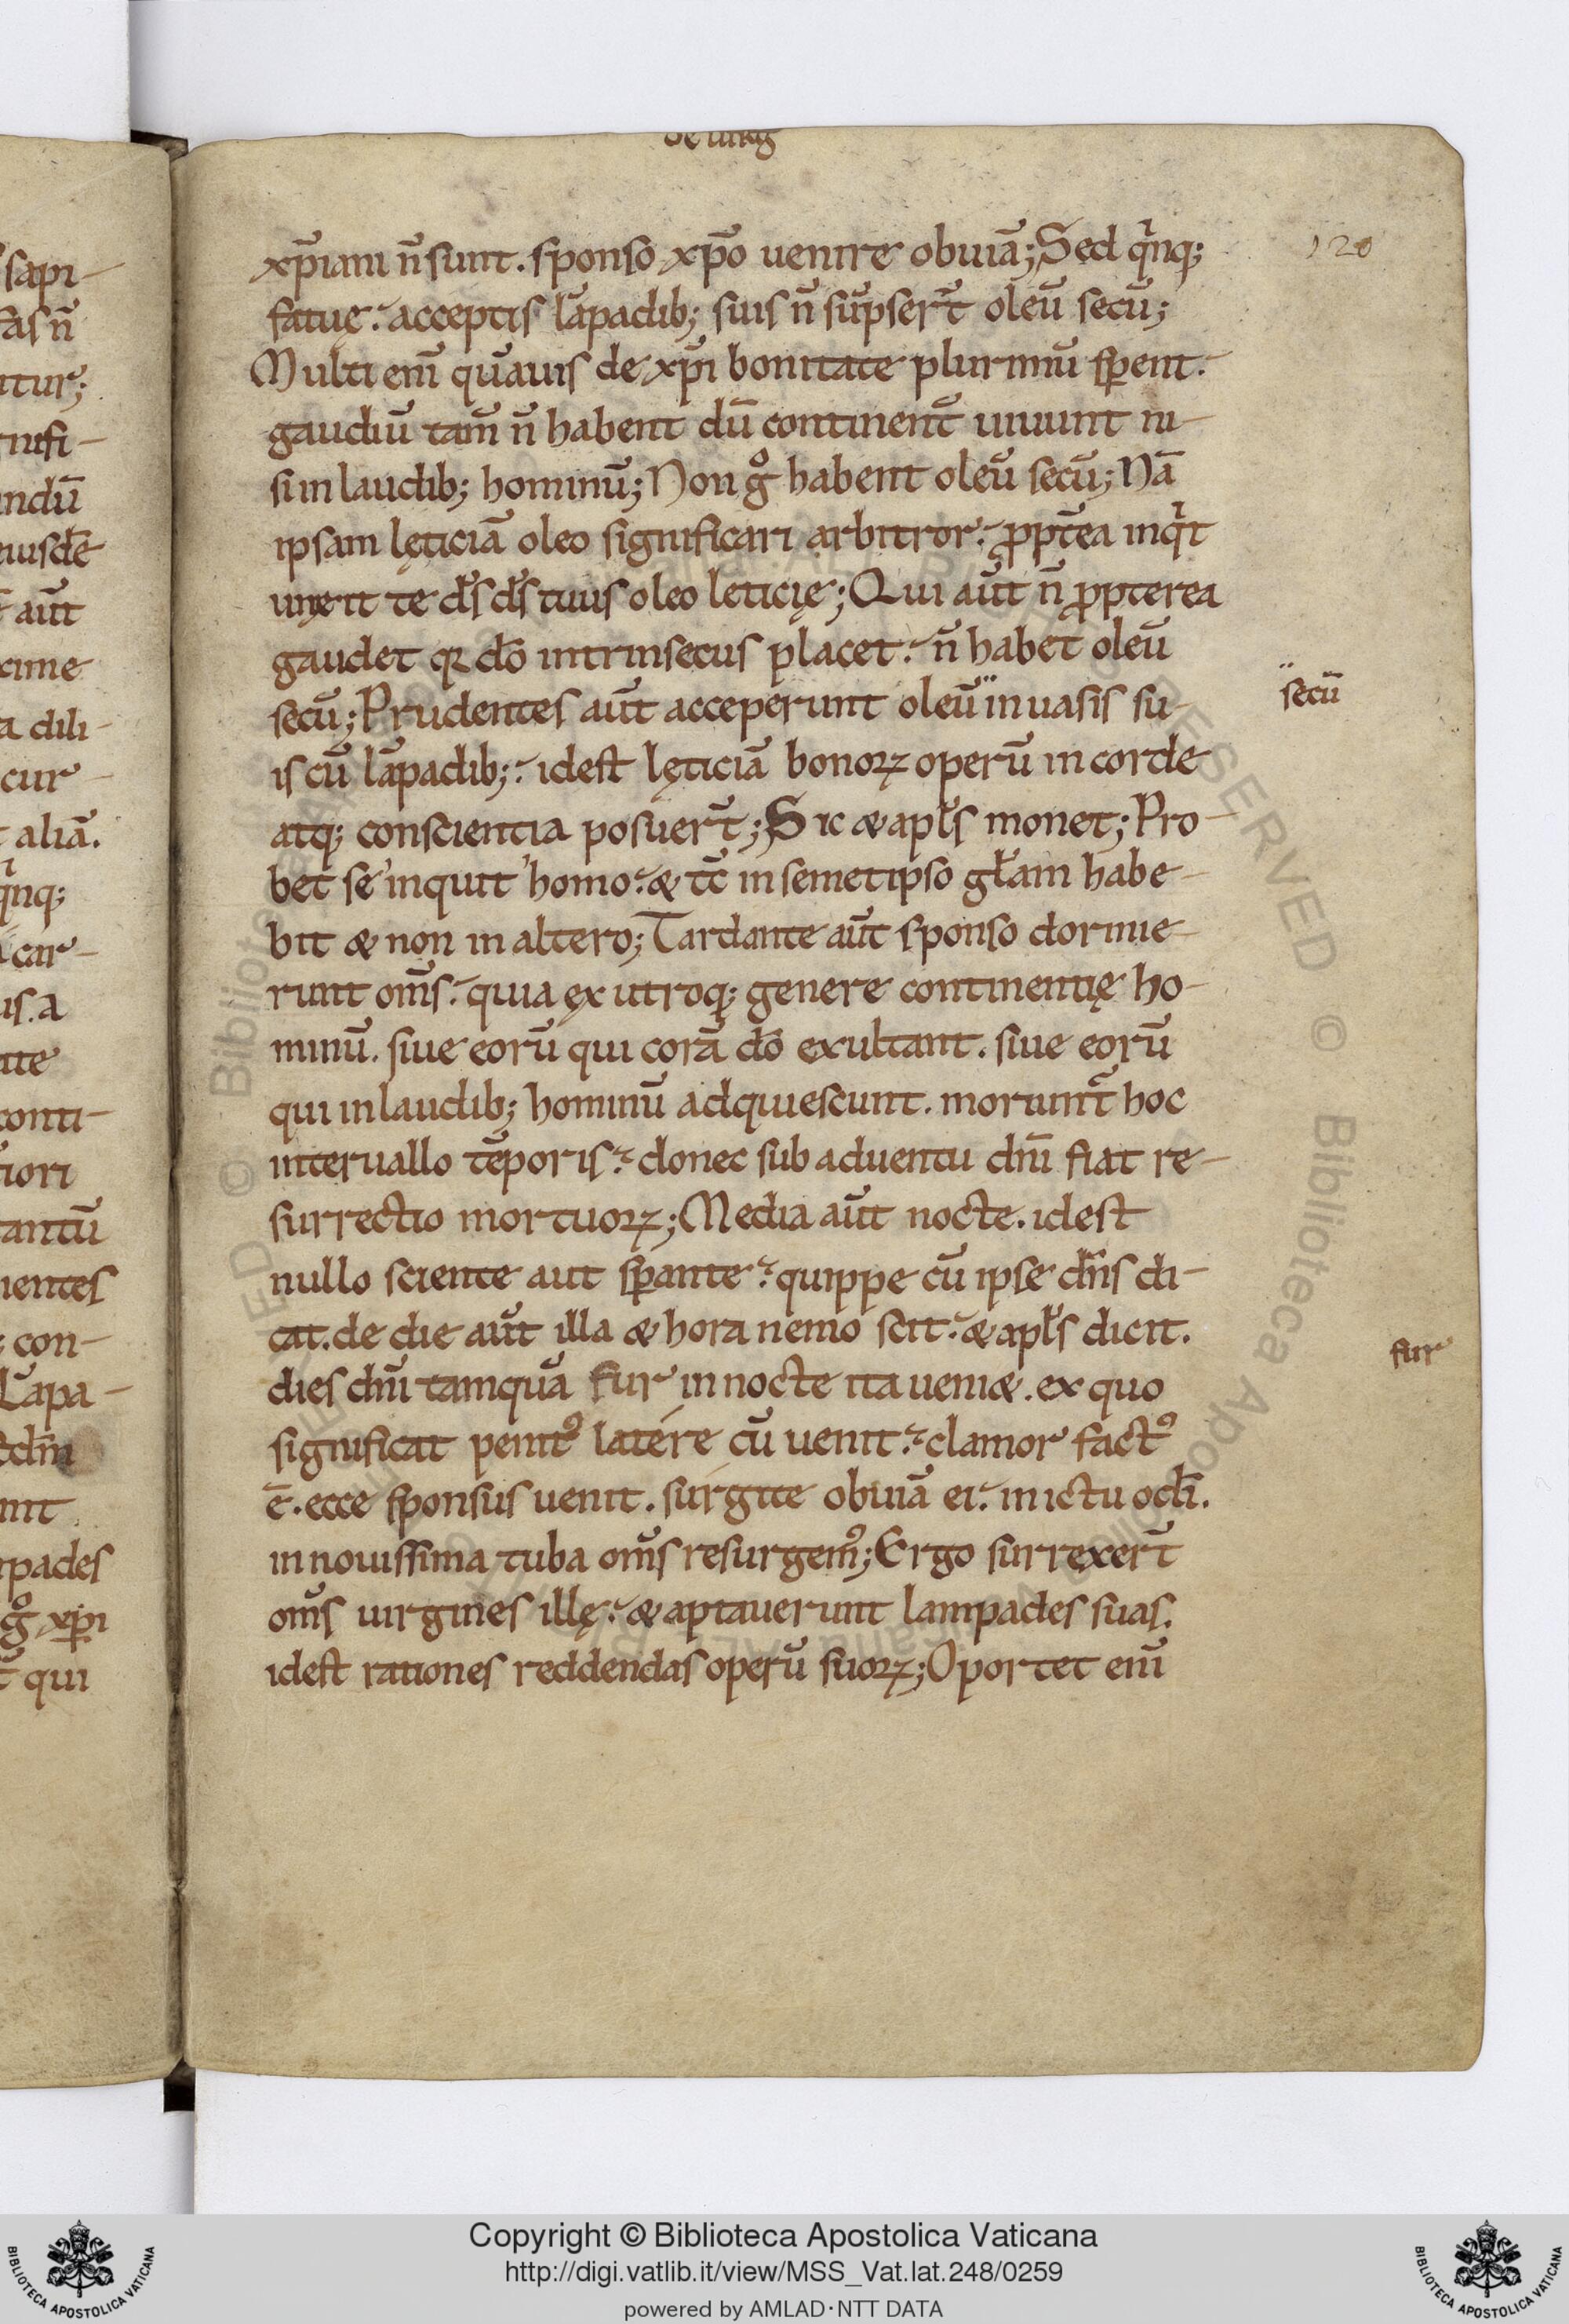 xp̄iani n̄ sunt. sponso xp̄o uenire obuiā; Sed qͥnq;
120
fatuę. acceptis lāpadib; suis n̄ sūpser̄t oleū secū;
Multi eni̅ quāuis de xp̄i bonitate plurimū sꝑent.
gaudiū tam̄ n̄ habent dū continent̄ uiuunt ni-
si in laudib; hominū; Non gͦ habent oleū secū; Nā
ipsam lęticiā oleo significari arbitror. ꝓpt̄ea inqͥt
unxit te d̄s d̄s tuus oleo leticię; Qui aūt n̄ ꝓpterea
gaudet qꝛ dō intrinsecus placet. n̄ habet oleū
secū; Prudentes aūt acceperunt oleū in uasis su-
secū
is cū lāpadib;. idest lęticiā bonoꝝ operū in corde
atq; conscientia posuer̄t; Sic & apl̄s monet; Pro-
bet se inquit homo. & tc̄ in semetipso gl̄am habe-
bit & non in altero; Tardante aūt sponso dormie-
runt om̄s. quia ex utroq; genere continentię ho-
minū. siue eorū qui corā dō exultant. siue eorū
qui in laudib; hominū adquiescunt. moriunt̄ hoc
interuallo tēporis. donec sub aduentu dn̄i fiat re-
surrectio mortuoꝝ; Media aūt nocte. idest
nullo sciente aut sꝑante. quippe cū ipse dn̄s di-
cat. de die aūt illa & hora nemo scit. & apl̄s dicit.
dies dn̄i tamquā fur in nocte ita ueni&. ex quo
fur
significat penitꝰ latére cū uenit. clamor factꝰ
ē. ecce sponsus uenit. súrgite obuiā ei. in ictu ocl̄i.
in nouissima tuba om̄s resurgemꝰ; Ergo surrexer̄t
om̄s uirgines illę. & aptauerunt lampades suas.
idest rationes reddendas operū suoꝝ; Oportet eni̅
Copyright © Biblioteca Apostolica Vaticana
http://digi.vatlib.it/view/MSS_Vat.lat.248/0259
powered by AMLAD·NTT DATA